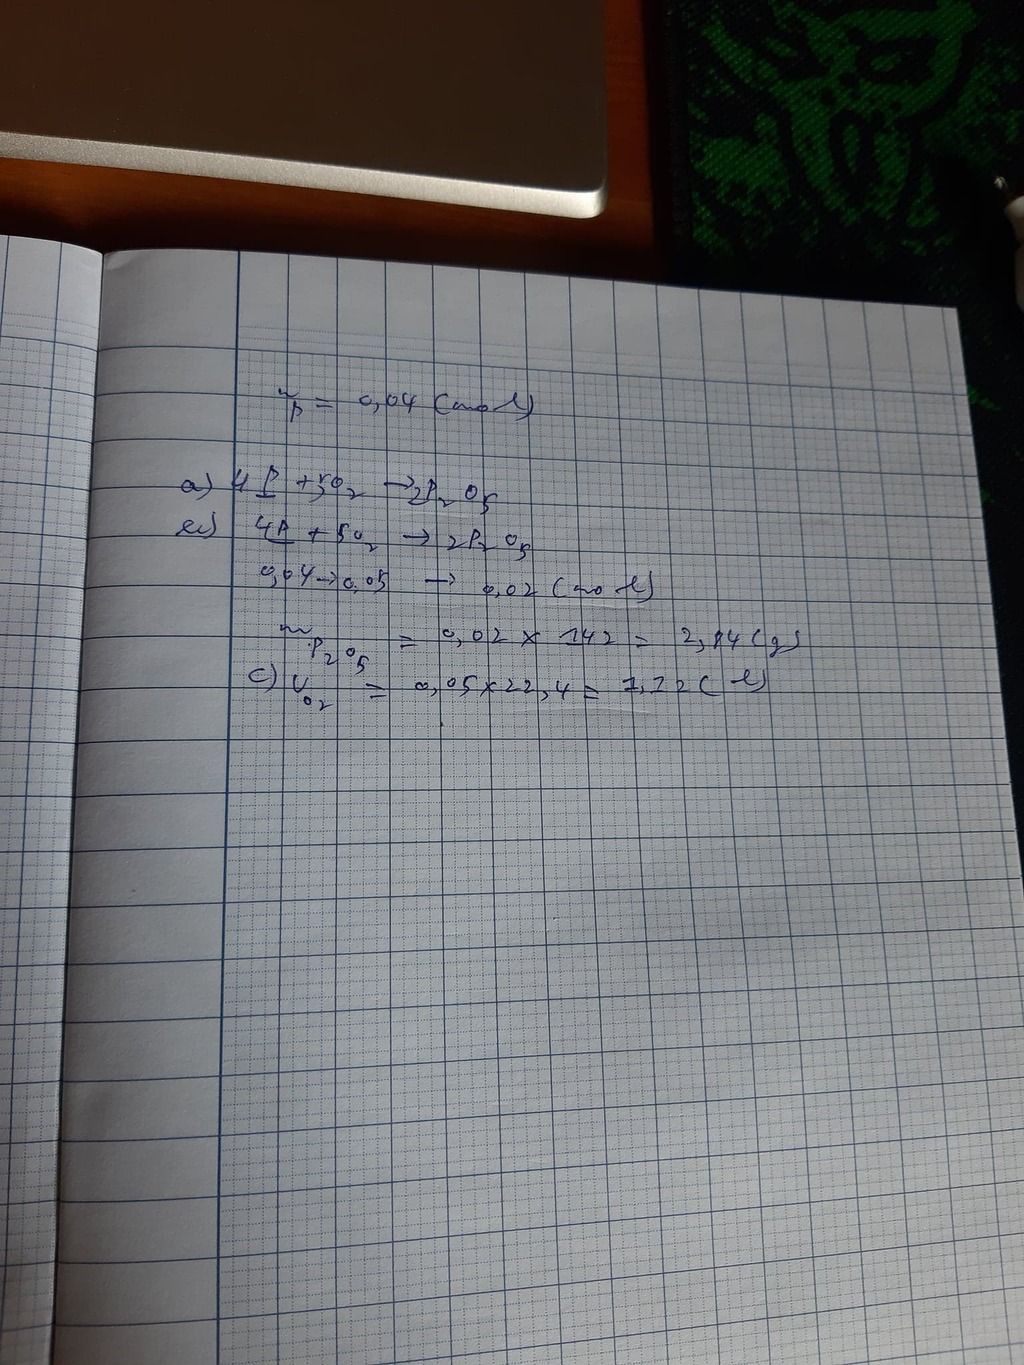 n_P = 0,04 (mol)
a) 4P + 5O₂ → 2P₂O₅
b) 4P + 5O₂ → 2P₂O₅
0,04 → 0,05 → 0,02 (mol)
m_P₂O₅ = 0,02 × 142 = 2,84 (g)
c) V_O₂ = 0,05 × 22,4 = 1,12 (l)